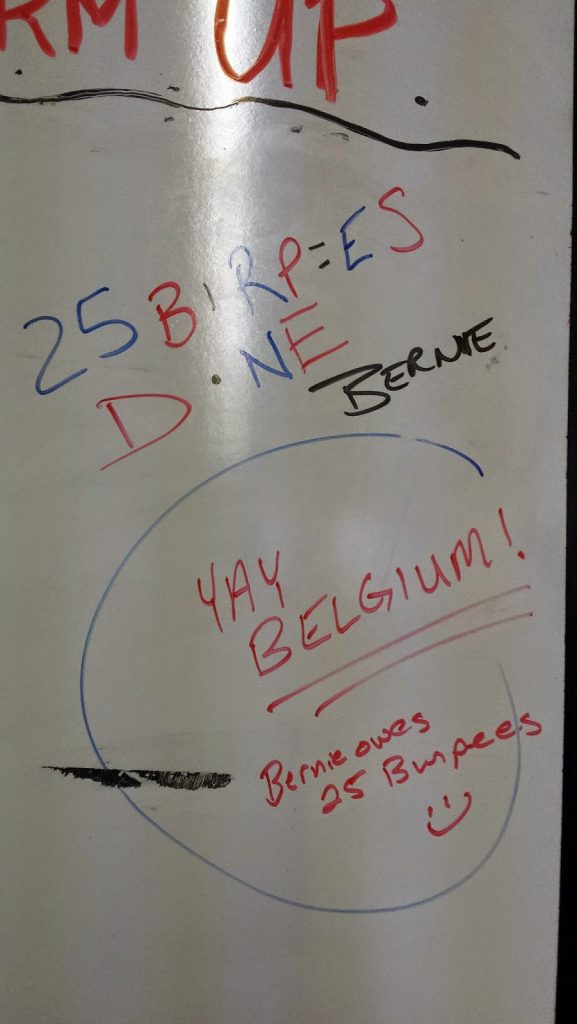 RM UP.
25 B'RP=ES
D.NE
BERNIE
YAY
BELGIUM!
Bernie owes
25 Burpees